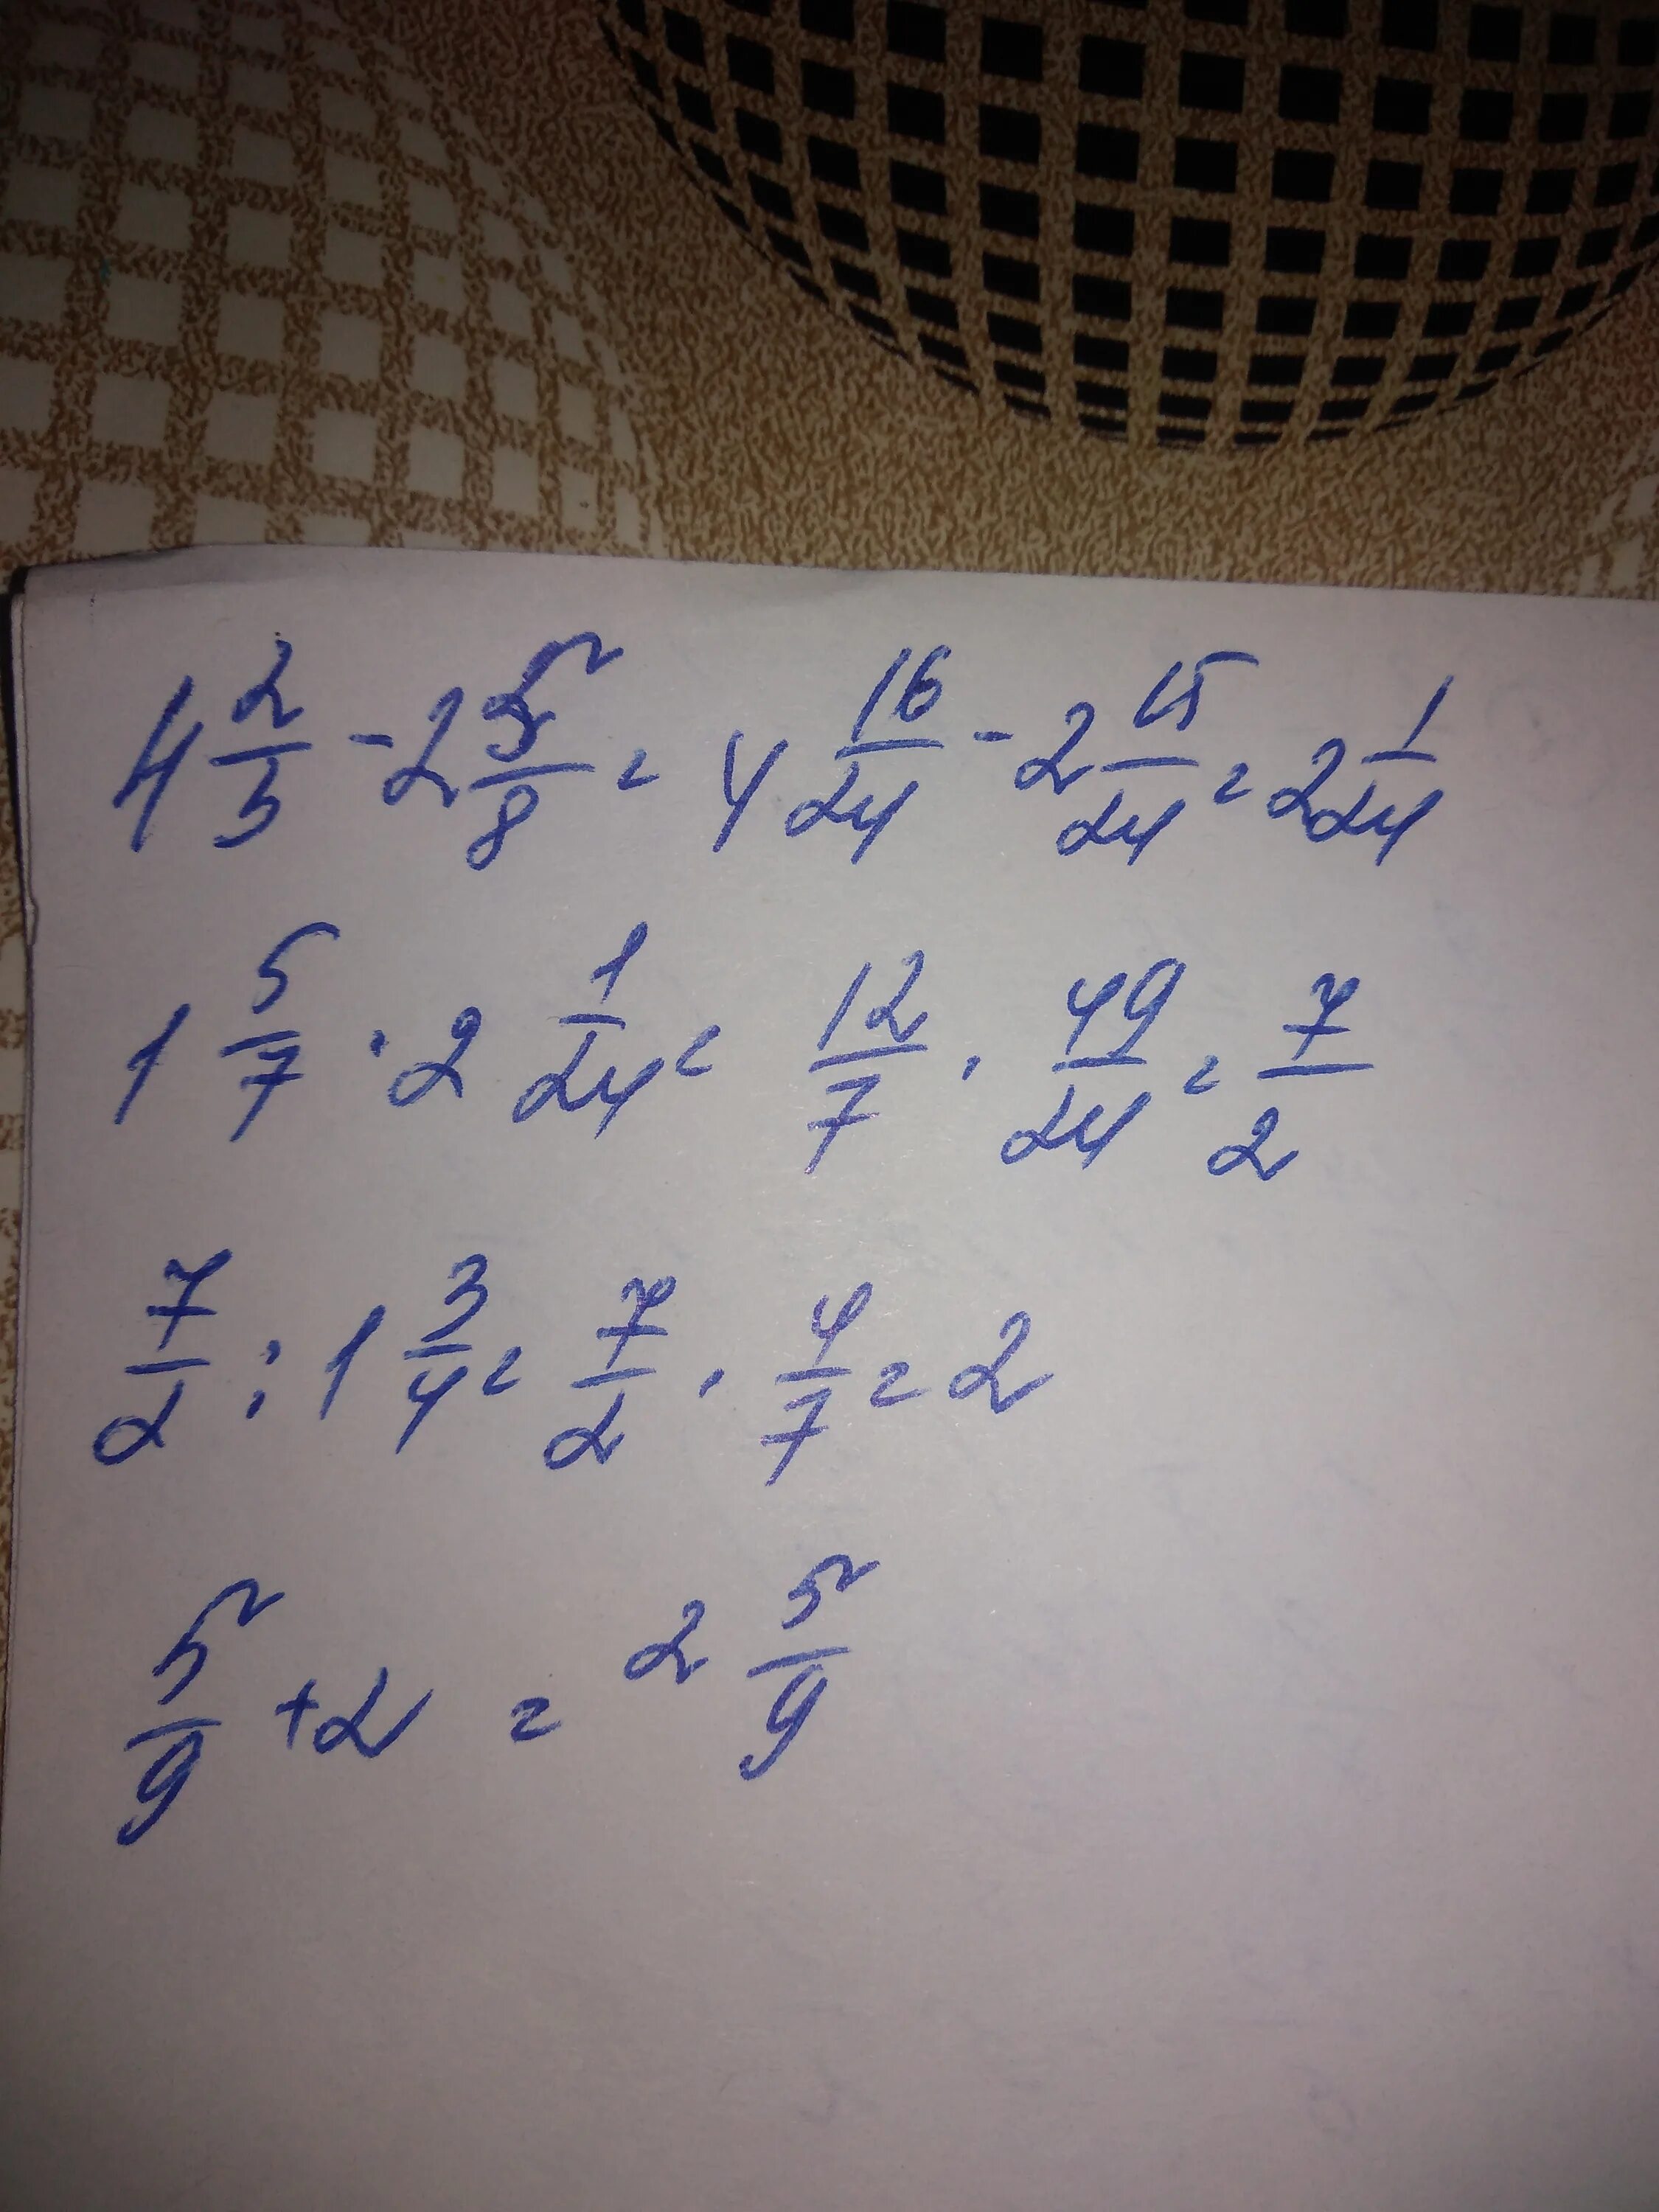 4 2/3 - 2 5/8 = 4 16/24 - 2 15/24 = 2 1/24
1 5/7 · 2 1/24 = 12/7 · 49/24 = 7/2
7/2 : 1 3/4 = 7/2 · 4/7 = 2
5/9 + 2 = 2 5/9